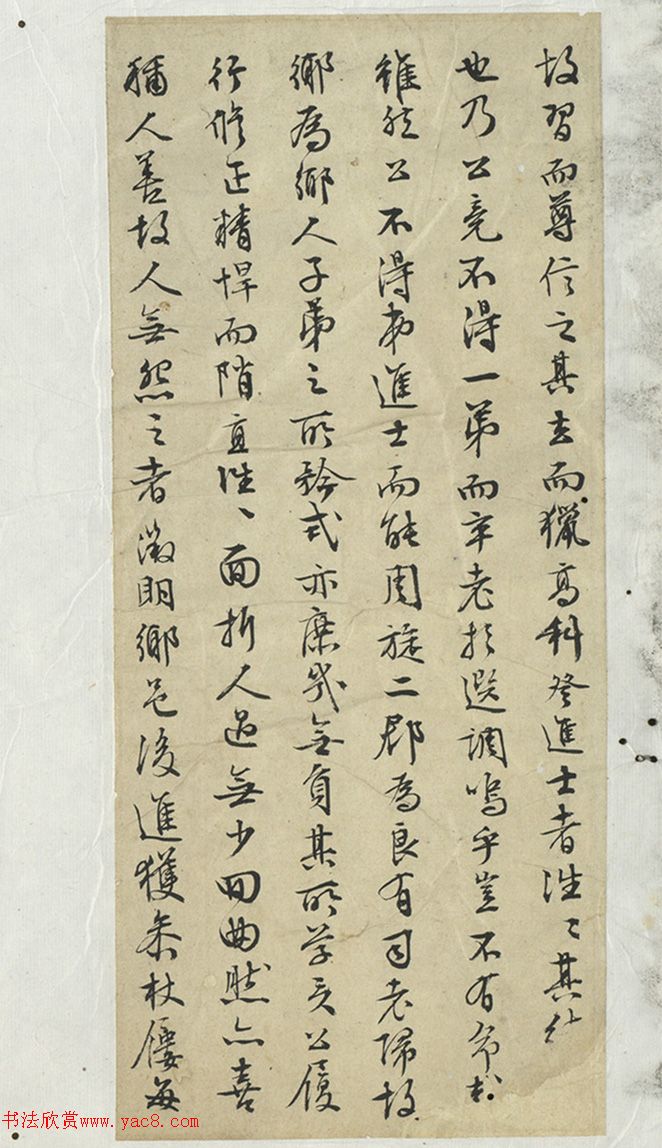 故習而尊信之其去而獵高科登進士者往〻其徒
也乃公竟不得一第而卒老於選調嗚乎豈不有命哉
雖然公不得為進士而能周旋二郡為良有司老歸故
鄉為鄉人子弟之所矜式亦庶幾無負其所學矣公履
行修正精悍而陗直往〻面折人過無少回曲然亦喜
稱人善故人無怨之者徵明鄉邑後進獲奉杖屨每
书法欣赏www.yac8.com